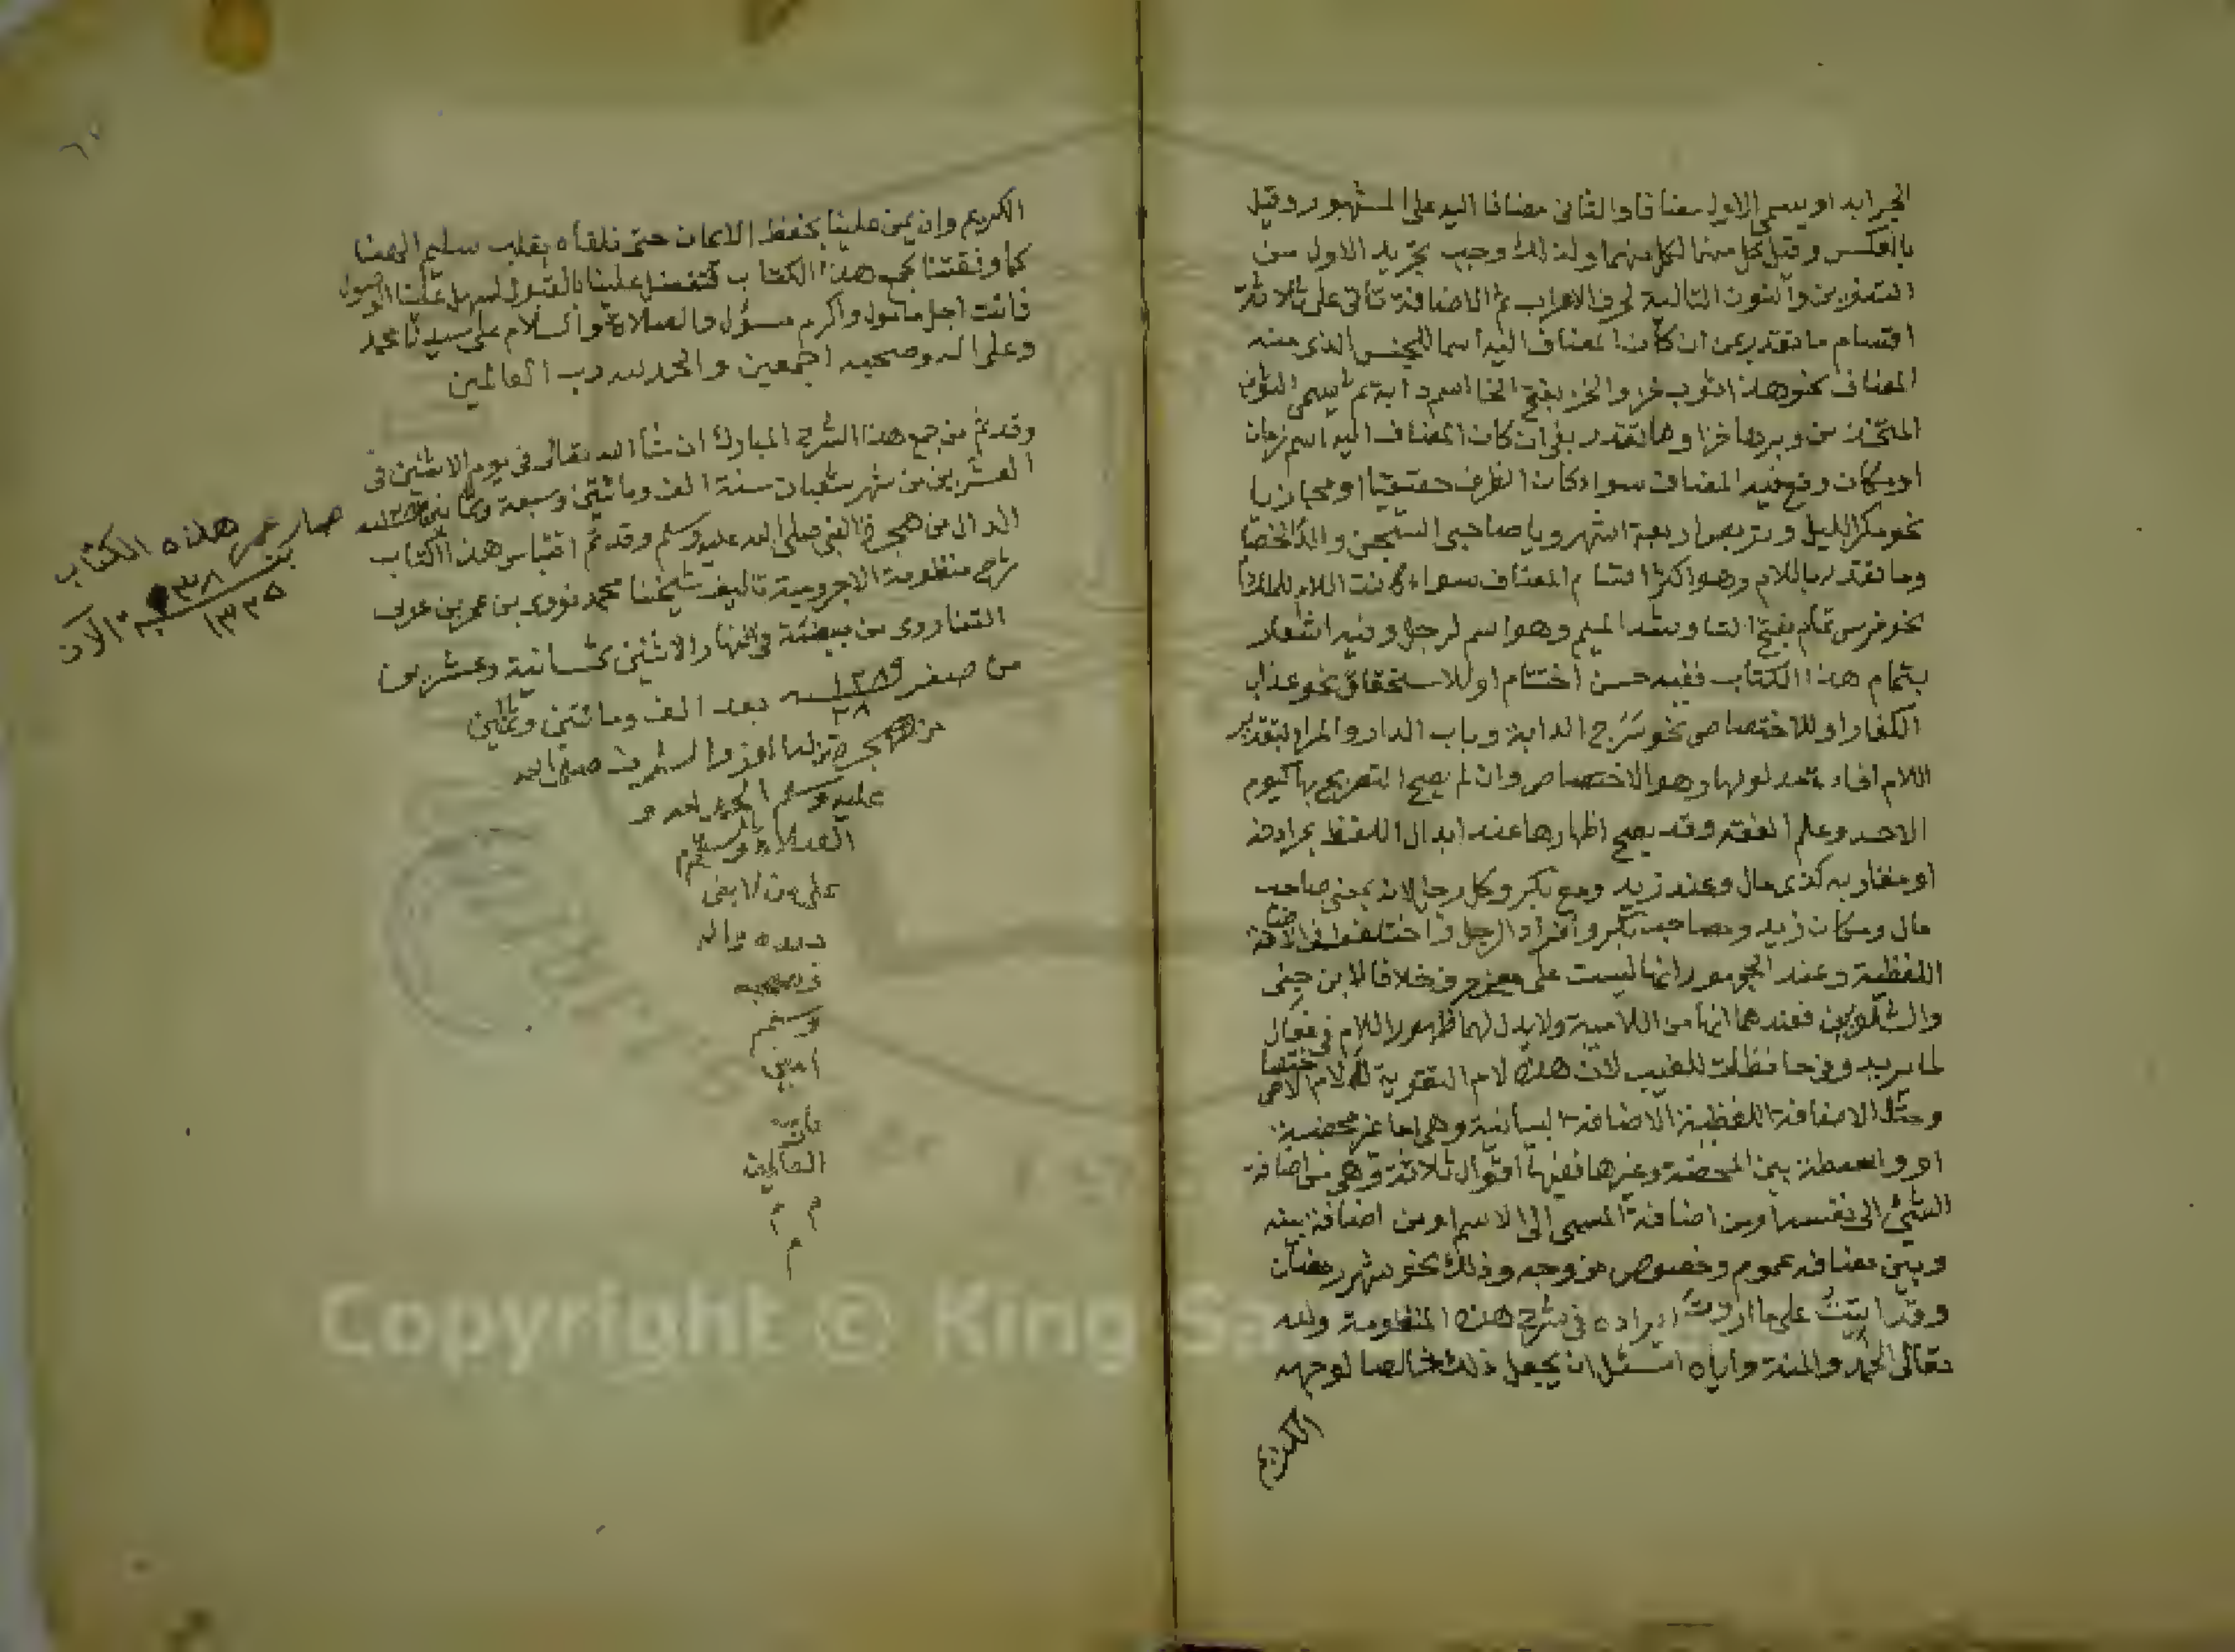 الجر ابدا ويسمى الاول مضافا والثانى مضافا اليه على المشهور وقيل
بالعكس وقيل كل منهما لكل منهما ولذلك وجب تجريد الاول من
التنوين والنون التالية لحرف الاعراب ثم الاضافة تأتى على ثلاثة
اقسام ما تقدر بمن ان كان المضاف اليه اسما للجنس الذى منه
المضاف نحو هذا ثوب خز والخز بفتح الخا اسم دابة ثم يسمى الثوب
المتخذ من وبرها خزا وما تقدر بفى ان كان المضاف اليه اسم زمان
او مكان وقع فيه المضاف سواء كان الظرف حقيقيا او مجازيا
نحو مكر الليل وتربص اربعة اشهر ويا صاحبى السجن والد الخصام
وما تقدر باللام وهو اكثر اقسام المضاف سواء كانت اللام للملك
نحو فرس تمام بفتح التا وشد الميم وهو اسم لرجل وفيه اشعار
بتمام هذا الكتاب ففيه حسن اختتام او للاستحقاق نحو عذاب
الكفار او للاختصاص نحو سرج الدابة وباب الدار والمراد بتقدير
اللام افادة مدلولها وهو الاختصاص وان لم يصح التصريح بها كيوم
الاحد وعلم الفقه وقد يصح اظهارها عند ابدال اللفظ بمرادفه
او مقاربه كذى مال وعند زيد ومع بكر وكل رجل لان بمعنى صاحب
مال ومكان زيد ومصاحب بكر وافراد الرجل واختلفوا فى الاضافة
اللفظية وعند الجمهور انها ليست على معنى حرف خلافا لابن جنى
والشلوبين فعندهما انها من اللامية ولا يدل لهما ظهور اللام فى فعال
لما يريد وفى حافظات للغيب لان هذه لام التقوية لا لام الاختصاص
ومثل الاضافة اللفظية الاضافة البيانية وهى اما غير محضة
او واسطة بين المحضة وغيرها ففيها اقوال ثلاثة وهى من اضافة
الشئ الى نفسه او من اضافة المسمى الى الاسم او من اضافة بينه
وبين مضافه عموم وخصوص من وجه وذلك نحو شهر رمضان
وقد اتيت على ما اردت ايراده فى شرح هذه المنظومة ولله
تعالى الحمد والمنة واياه اسئل ان يجعل ذلك خالصا لوجهه
الكريم
الكريم وان يمن علينا بحفظ الايمان حتى نلقاه بقلب سليم الهنا
كما وفقتنا بجمع هذا الكتاب فتفضل علينا بالقبول لسهل علينا الوصول
فانت اجل مامول واكرم مسؤل والصلاة والسلام على سيدنا محمد
وعلى اله وصحبه اجمعين والحمد لله رب العالمين
وقد تم من جمع هذا الشرح المبارك ان شأ الله تعالى فى يوم الاثنين فى
العشرين من شهر شعبان سنة الف ومائتين وسبعة وثمانين
الدال من هجرة النبى صلى الله عليه وسلم وقد تم اقتباس هذا الكتاب
شرح منظومة الاجرومية تاليف شيخنا محمد نووى بن عمر بن عربى
التناروى من بيضته فى نهار الاثنين ثمانية وعشرين
من صفر ١٢٨٩ ٢٨ سنه بعد الف ومائتين وثمانين
من هجرة من له العز والشرف صلى الله
عليه وسلم الحمد لله و
الصلاة والسلام
على من لا نبى
بعده واله
وصحبه
وسلم
امين
يارب
العالمين
م م
م
صار عمر هذه الكتاب
٣٨ سنة الآن
١٣٢٥
٦٧
Copyright © King Sa